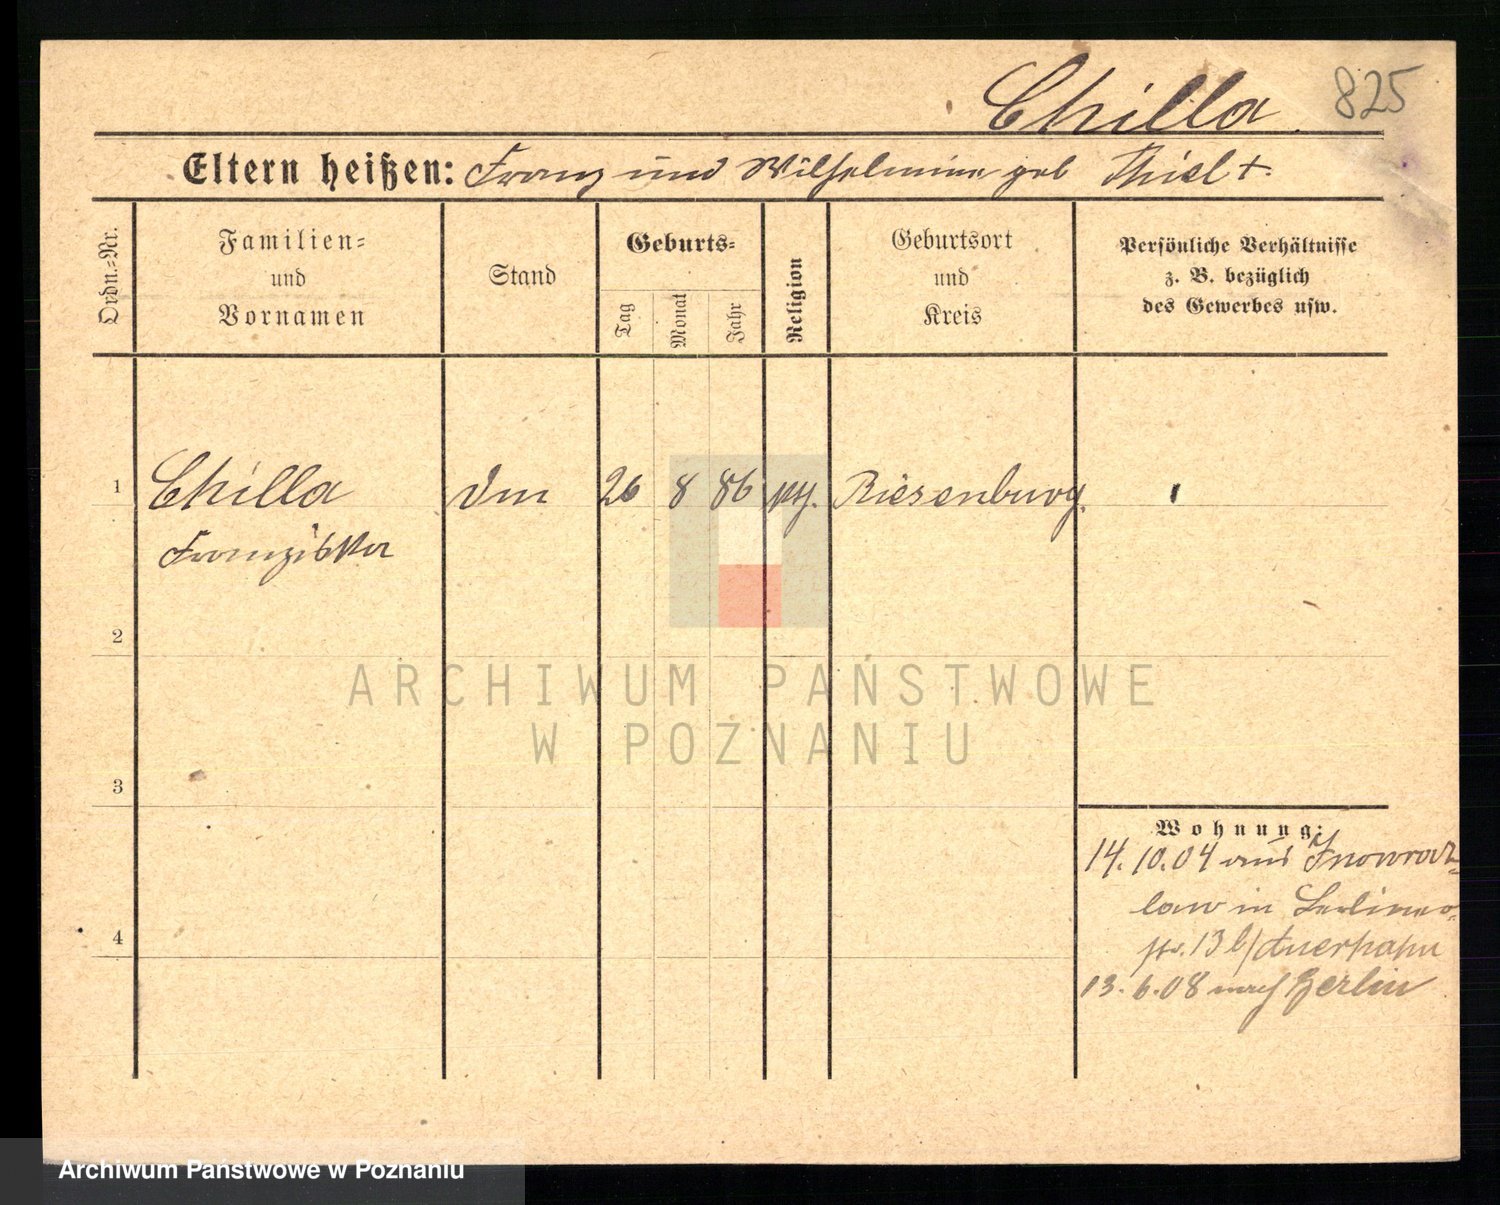 Chilla 825
Eltern heißen: Franz und Wilhelmine geb Thiel +.
Ordn.=Nr.
Familien=
und
Vornamen
Stand
Geburts=
Tag
Monat
Jahr
Religion
Geburtsort
und
Kreis
Persönliche Verhältnisse
z. B. bezüglich
des Gewerbes usw.
1 Chilla 26 8 86 Riesenburg
Franziska
2
3
4
Wohnung:
14.10.04 aus Inowraz=
law in Berliner=
str. 13 b/Auerhahn
13.6.08 nach Berlin
ARCHIWUM PAŃSTWOWE
W POZNANIU
Archiwum Państwowe w Poznaniu